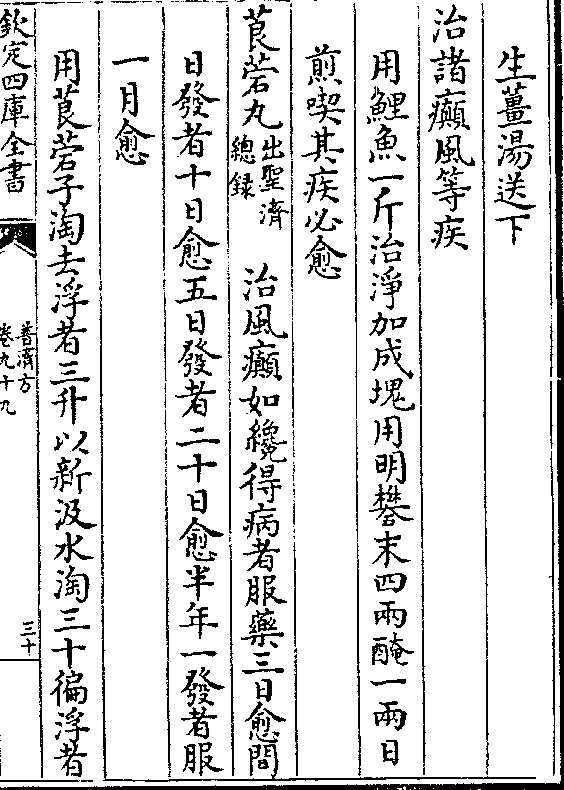 生薑湯送下
治諸癲風等疾
用鯉魚一斤治淨加成塊用明礬末四兩醃一兩日
煎喫其疾必愈
莨菪丸出聖濟總録 治風癲如纔得病者服藥三日愈間
日發者十日愈五日發者二十日愈半年一發者服
一月愈
用莨菪子淘去浮者三升以新汲水淘三十徧浮者
欽定四庫全書
普濟方
卷九十九
三十